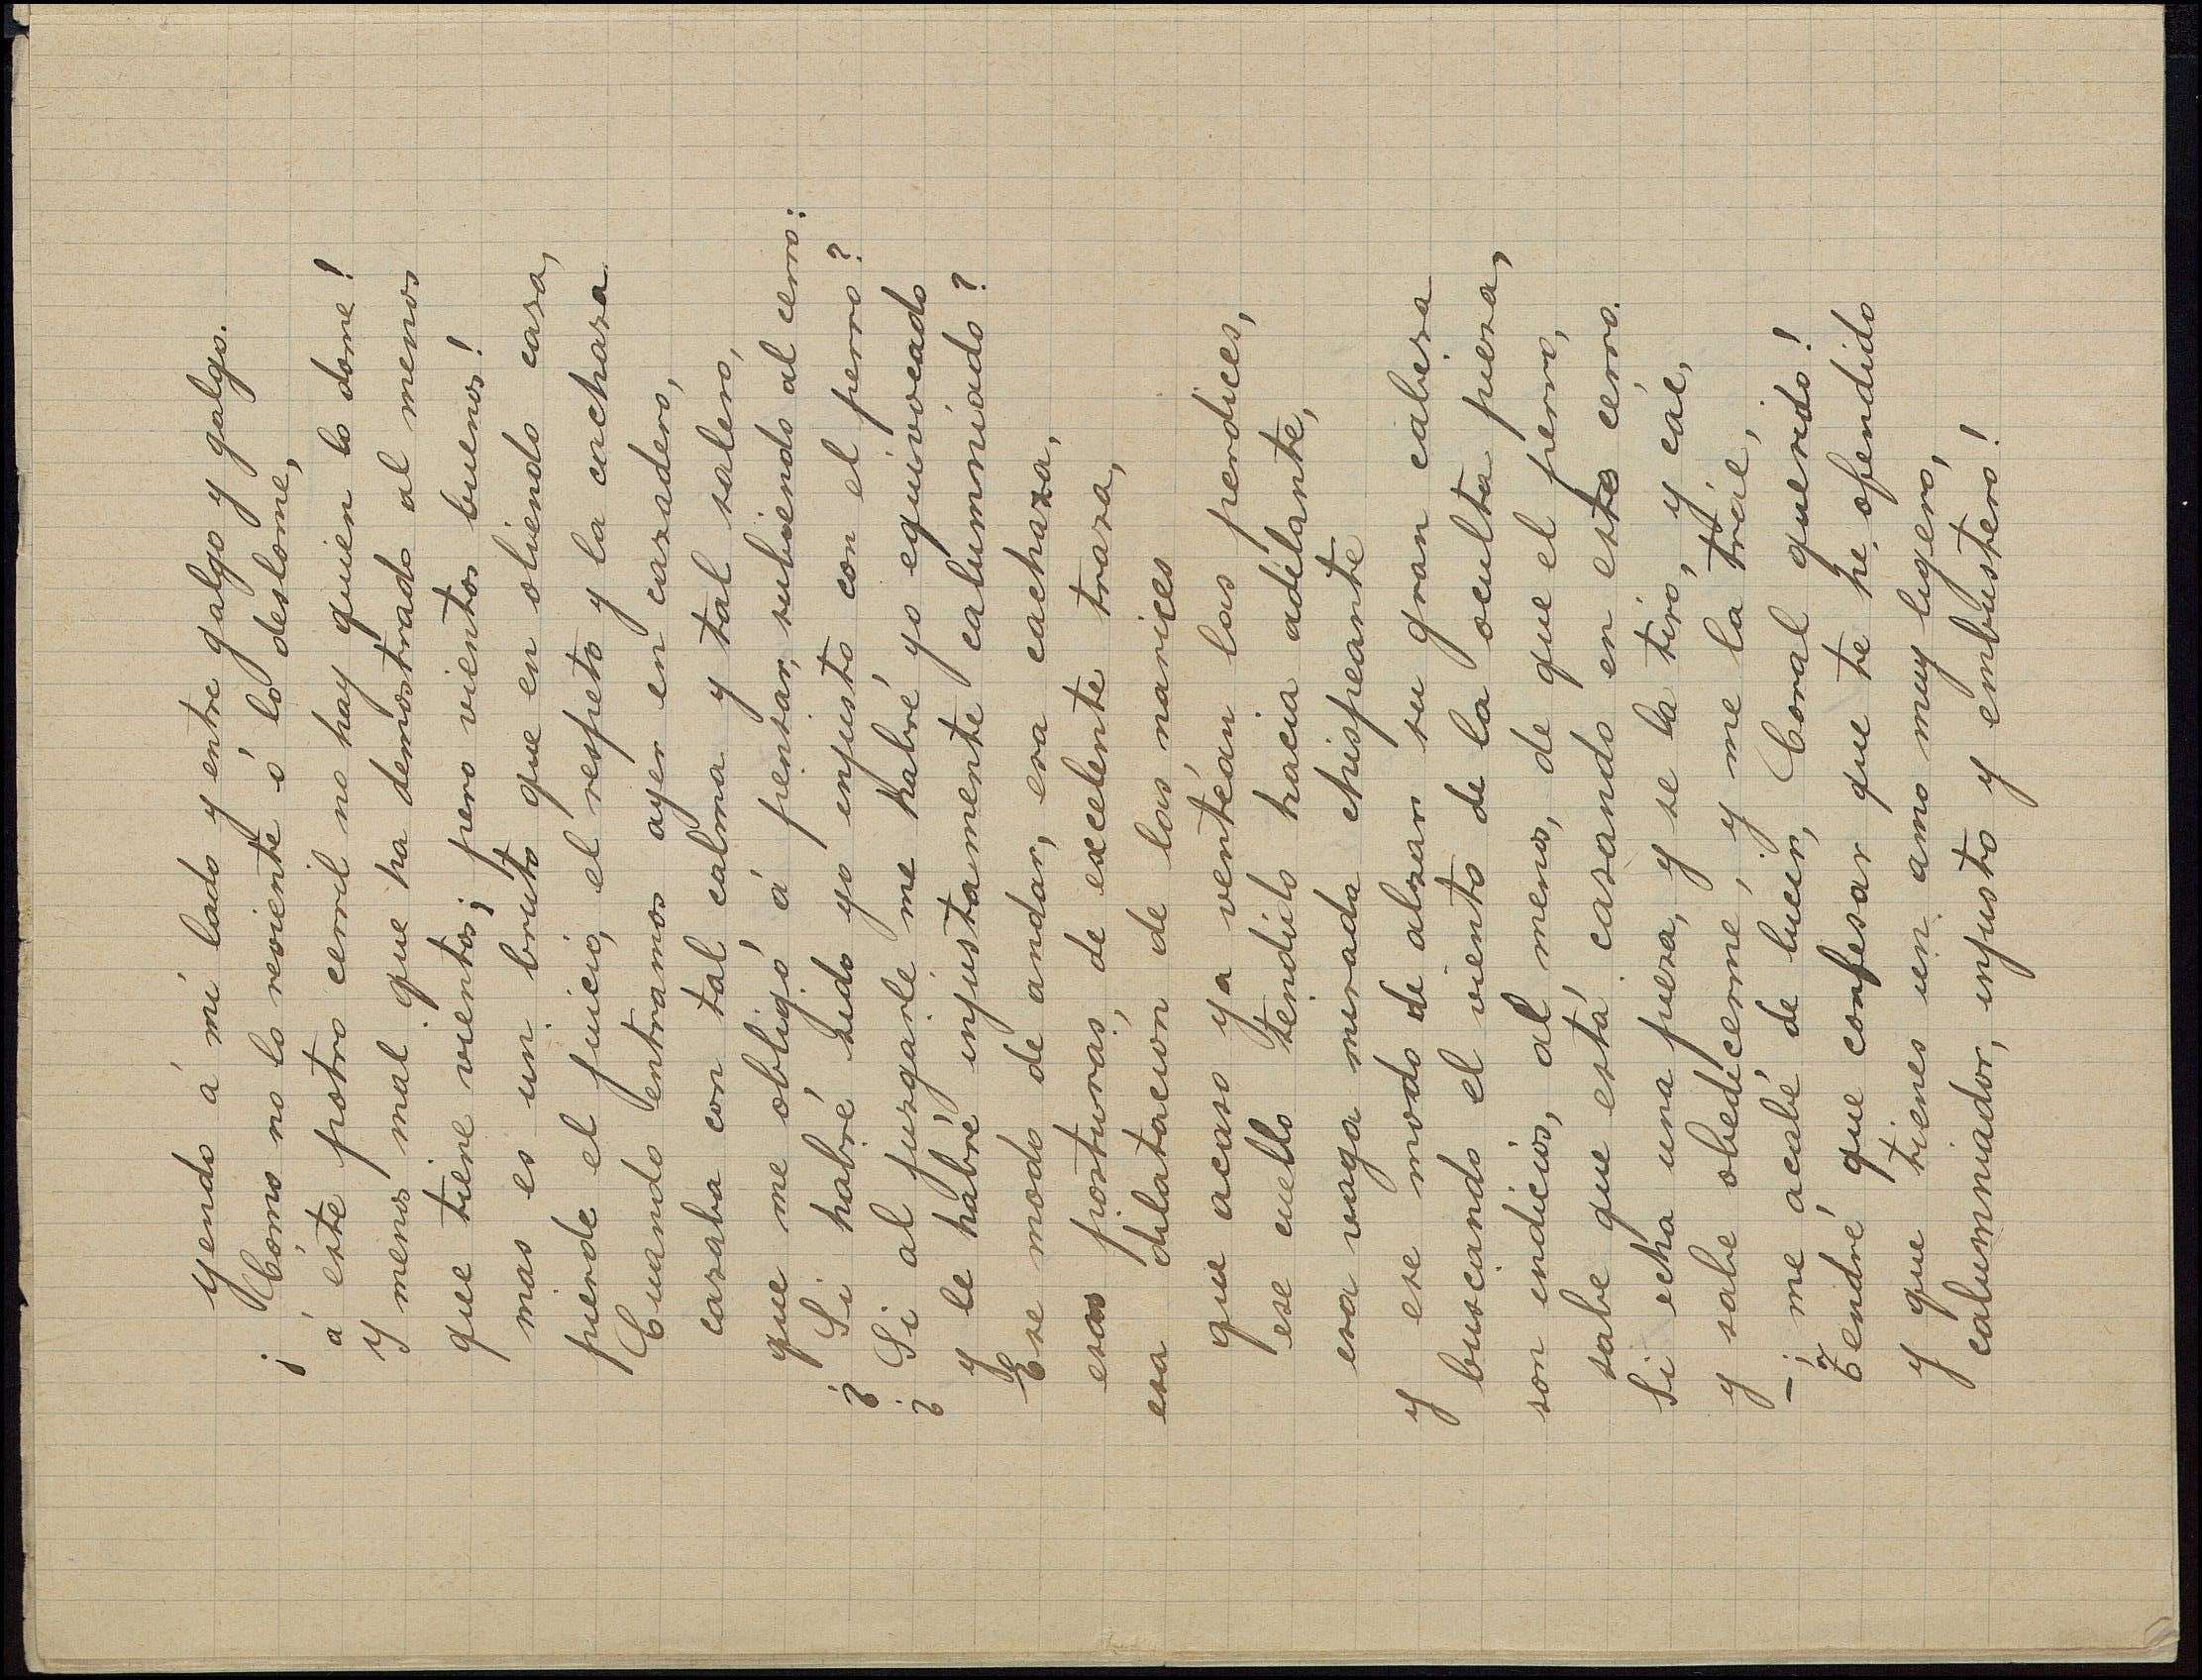 yendo á mi lado y entre galgo y galgo.
¡Cómo no lo reviente ó lo deslome,
á este potro cerril no hay quien lo dome!
Y menos mal que ha demostrado al menos
que tiene vientos; pero vientos buenos!
mas es un bruto que en oliendo caza,
pierde el juicio, el respeto y la cachaza
Cuando entramos ayer en cazadero,
cazaba con tal calma y tal salero,
que me obligó á pensar, subiendo al cerro:
¿Si habré sido yo injusto con el perro?
¿Si al juzgarle me habré yo equivocado
y le habré injustamente calumniado?
Ese modo de andar, esa cachaza,
esas posturas, de excelente traza,
esa dilatación de las narices
que acaso ya ventéan las perdices,
ese cuello tendido hacia adelante,
esa vaga mirada chispeante
y ese modo de alzar su gran cabeza
buscando el viento de la oculta pieza,
son indicios, al menos, de que el perro,
sabe que está cazando en este cerro.
Si echa una pieza, y se la tiro, y cáe,
y sabe obedecerme, y me la tráe,
—¡me acabé de lucir, Coral querido!
¡Tendré que confesar que te he ofendido
y que tienes un amo muy ligero,
calumniador, injusto y embustero!